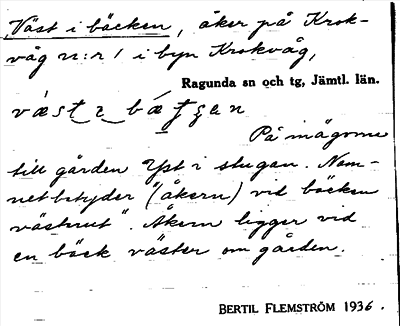 Väst i bäcken, åker på Krok-
våg nr 1 i byn Krokvåg,
Ragunda sn och tg, Jämtl. län.
På ägorna
till gården Yst i stugan. Nam-
net betyder "(åkern) vid bäcken
västnut". Åkern ligger vid
en bäck väster om gården.
BERTIL FLEMSTRÖM 1936.